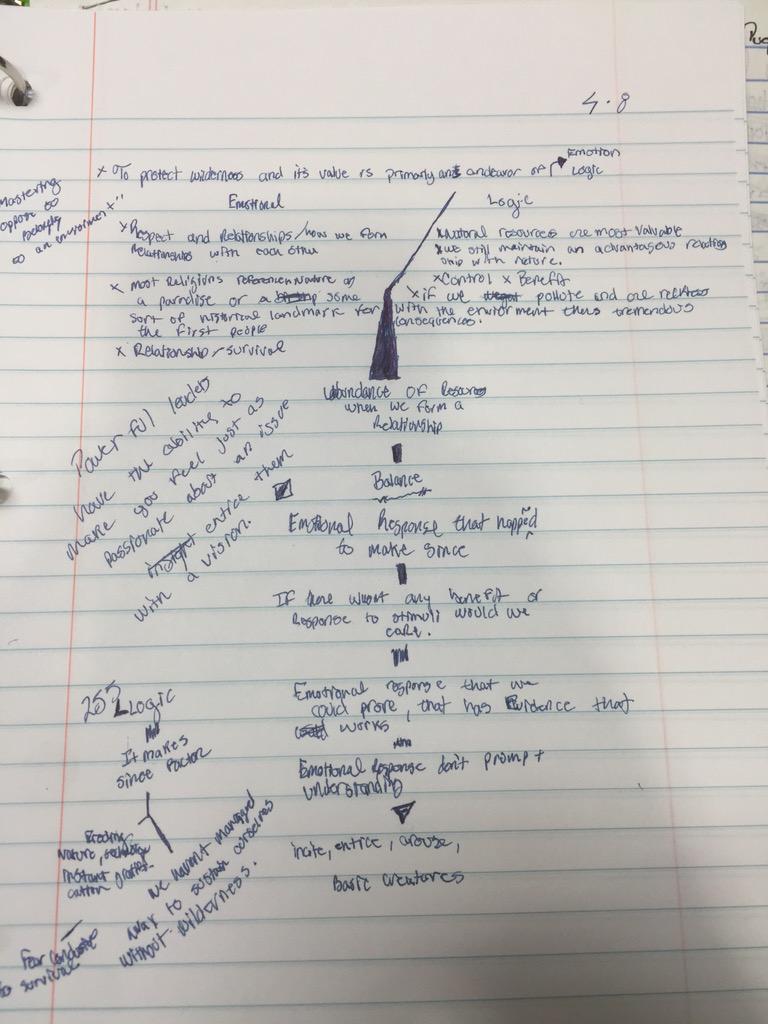 4.8
x To protect wilderness and its value is primarily an endeavor of Emotion
Logic
Mastering
oppose to
belonging
to an environment"
Emotional
x Respect and Relationships/how we form
Relationships with each other
x most Religions reference Nature as
a paradise or a some
sort of historical landmark for
the first people
x Relationship/survival
Logic
x Natural resources are most valuable
x we still maintain an advantagous
ship with nature.
x Control x Benefit
x if we pollute and are reckless
with the enviorment theirs tremendous
consequences.
abundance of Resources
when we form a
Relationship
Balance
Emotional Response that happed
to make since
If there wasnt any benefit or
Response to stimuli would we
care.
Emotional response that we
could prove, that has Evidence that
works
Emotional Response don't prompt
understanding
incite, entice, arouse,
Basic creatures
Powerfull leaders
have the ability to
make you feel just as
passionate about an issue
entice them
with a vision.
Logic
It makes
since factor
Nature,
instant
Fear
to survival
we havent managed
way to sustain ourselves
without wilderness.